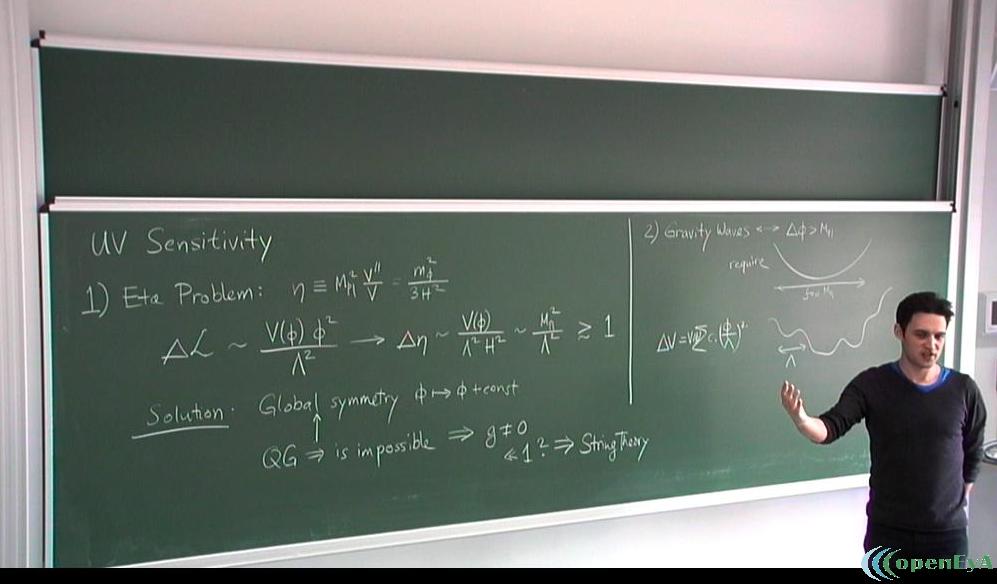 UV Sensitivity
1) Eta Problem: η ≡ M²Pl V''/V = m²ϕ/3H²
ΔL ~ V(ϕ) ϕ²/Λ² → Δη ~ V(ϕ)/Λ²H² ~ M²Pl/Λ² ≳ 1
Solution: Global symmetry ϕ ↦ ϕ + const
↑
QG ⇒ is impossible ⇒ g ≠ 0
≪ 1 ? ⇒ String Theory
2) Gravity Waves ↔ Δϕ > MPl
require
ΔV =
Λ
openEyA